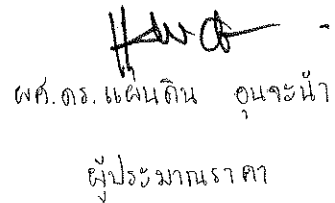 ผศ.ดร.แผ่นดิน อุนจะนำ
ผู้ประมาณราคา